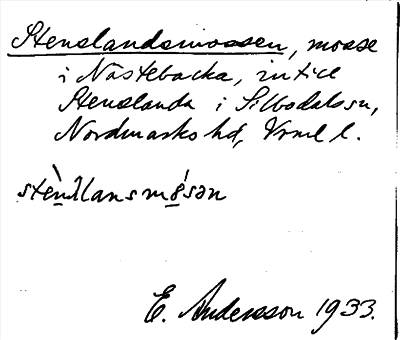 Stenslandsmossen, mosse
i Nästebacka, intill
Stenslanda i Silbodals sn,
Nordmarks hd, Vrml l.
stèn̲lansmó̲sən
E. Andersson 1933.